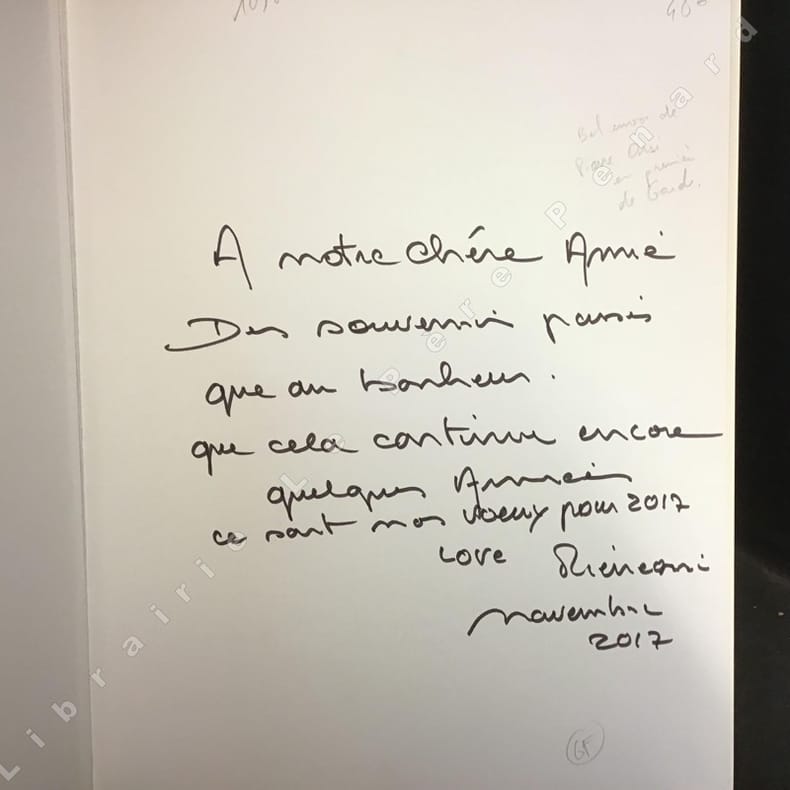 40
Bel envoi de
Pierre Orsi
en première
de Garde.
A notre chére Annie
Des souvenir passés
que du bonheur.
que cela continue encore
quelques Années
ce sont nos voeux pour 2017
Love
novembre
2017
GF
Librairie Le Pere Penard